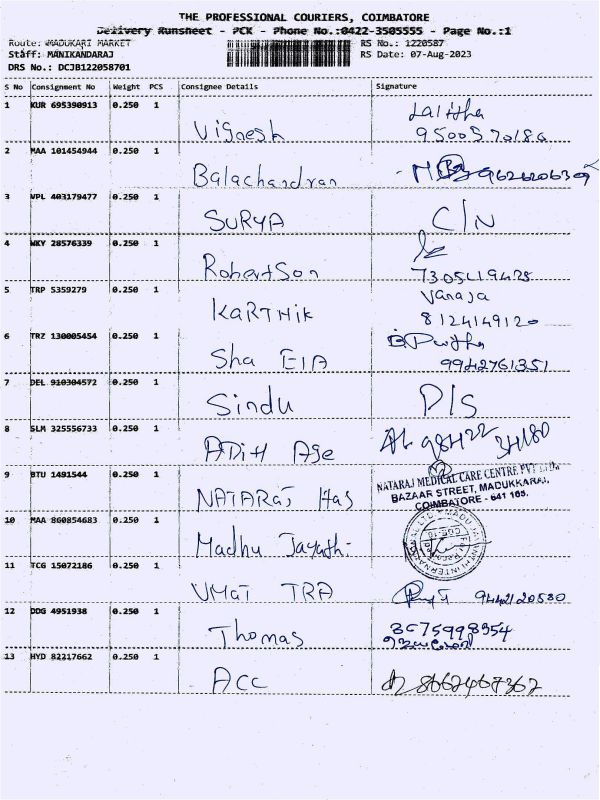 THE PROFESSIONAL COURIERS, COIMBATORE
Delivery Runsheet - PCK - Phone No.:0422-3505555 - Page No.:1
Route: MADUKARI MARKET
RS No.: 1220587
Staff: MANIKANDARAJ
RS Date: 07-Aug-2023
DRS No.: DCJB122058701
S No Consignment No Weight PCS Consignee Details Signature
1 KUR 695390913 0.250 1 Vignesh Lalitha
95005 70180
2 MAA 101454944 0.250 1 Balachandran 9626206309
3 VPL 403179477 0.250 1 SURYA C/N
4 WKY 28576339 0.250 1 Robertson
7305419425
5 TRP 5359279 0.250 1 KARTHIK Vanaja
8124149120
6 TRZ 130005454 0.250 1 Sha EIA
9942761351
7 DEL 910304572 0.250 1 Sindu D/S
8 SLM 325556733 0.250 1 ADITH Age
9 BTU 1491544 0.250 1 NATARAJ Has
NATARAJ MEDICAL CARE CENTRE PVT LTD.
BAZAAR STREET, MADUKKARAI,
COIMBATORE - 641 105.
10 MAA 860854683 0.250 1 Madhu Jayathi
11 TCG 15072186 0.250 1 UMAT TRA 9442120580
12 DDG 4951938 0.250 1 Thomas 8675998954
13 HYD 82217662 0.250 1 Acc 8662467367